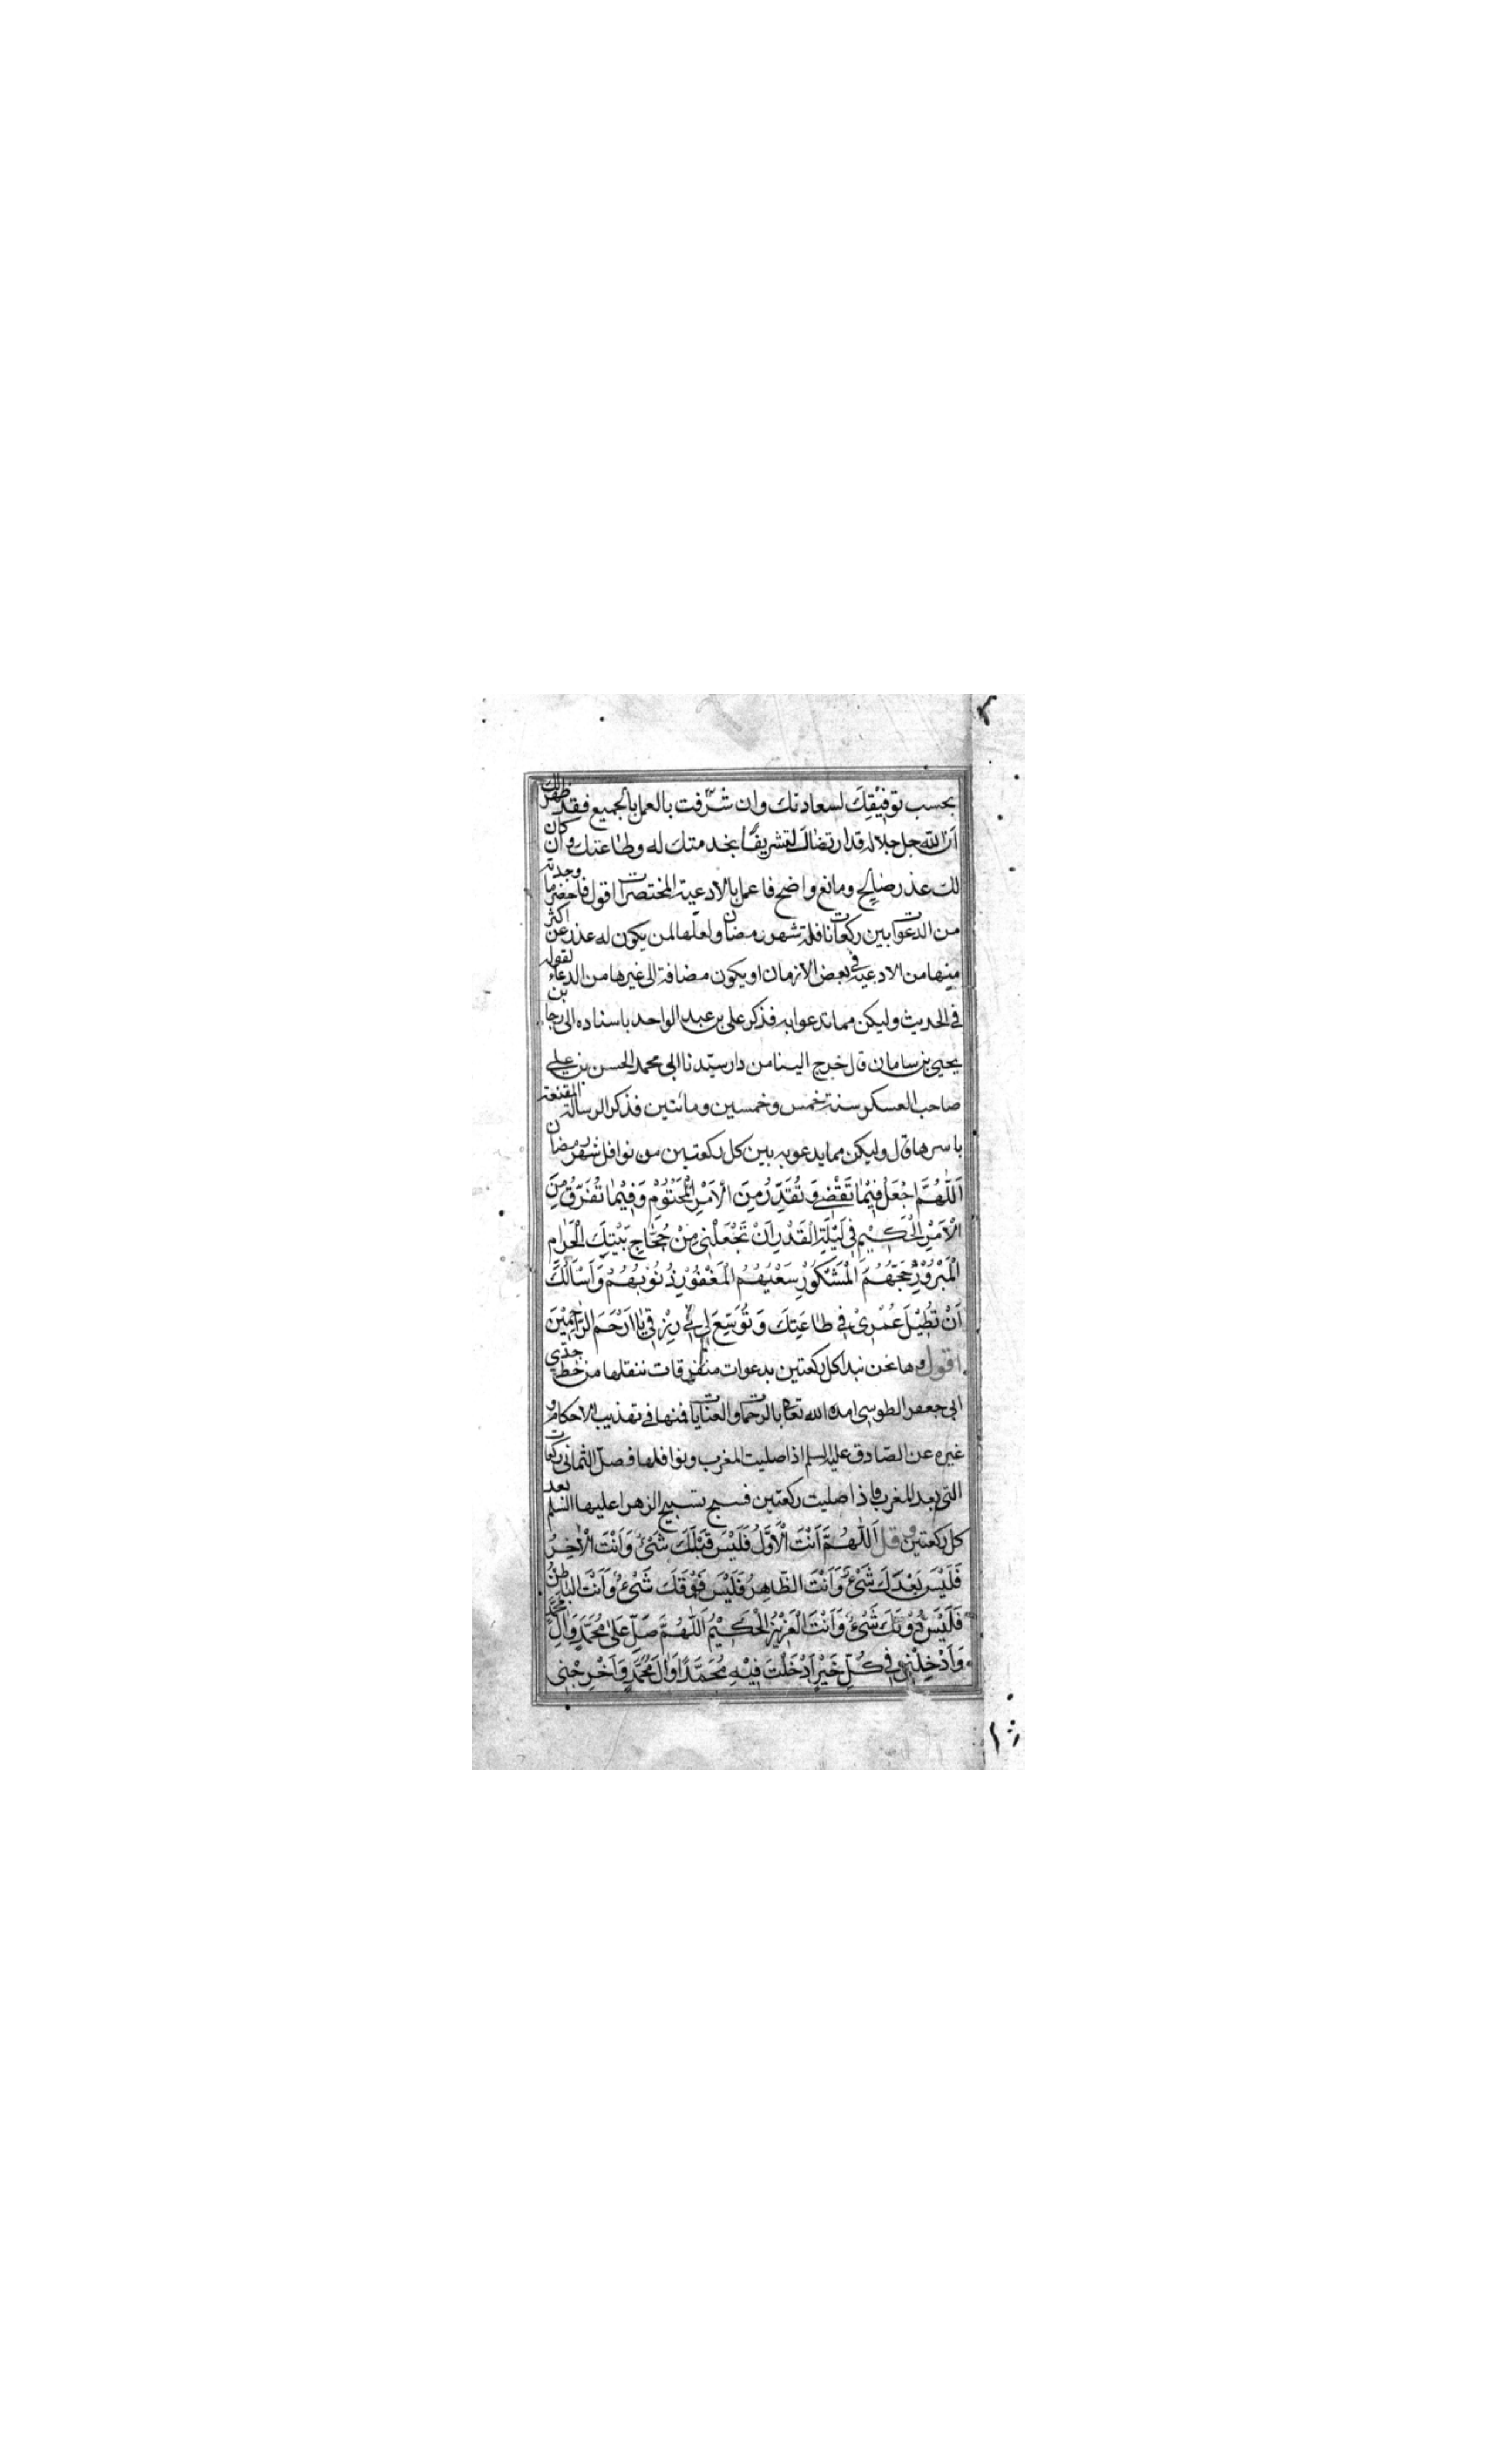 بحسب توفيقِكَ لسعادتك وان شرّفت بالعمل بالجميع فقد ظهر لك
اَنّ اللّه جل جلاله قد ارتضاك لتشريفك بخدمتك له وطاعتك وان كان
لك عذر صٰالح ومانع واضح فاعمل بالادعية المختصرات اقول فاحضر ما وجدته
من الدعوات بين ركعات نافلة شهر رمضان ولعلّها لمن يكون له عذر عن اكثر
منها من الادعية في بعض الازمان او يكون مضافة الى غيرها من الدعاء لقوله
في الحديث وليكن مما تدعوا به فذكر على بن عبد الواحد باسناده الى رجا بن
يحيى بن سامان قال خرج الينا من دار سيّدنا ابى محمد الحسن بن على
صاحب العسكر سنة خمس وخمسين ومائتين فذكر الرسالة المقنعة
باسرها قال وليكن مما يدعو به بين كل ركعتين من نوافل شهر رمضان
اَللّٰهُمَّ اجْعَلْ فِيْمٰا تَقْضٰى وَ تُقَدِّرُ مِنَ الْاَمْرِ الْمَحْتُوْمِ وَ فِيْمٰا تُفَرِّقُ مِنَ
الْاَمْرِ الْحَكِيْمِ فِى لَيْلَةِ الْقَدْرِ اَنْ تَجْعَلْنِى مِنْ حُجّٰاجِ بَيْتِكَ الْحَرٰامِ
الْمَبْرُوْرِ حَجُّهُمُ الْمَشْكُوْرِ سَعْيُهُمُ الْمَغْفُوْرِ ذُنُوْبُهُمْ وَ اَسْاَلُكَ
اَنْ تُطِيْلَ عُمْرِىْ فِى طٰاعَتِكَ وَ تُوَسِّعَ لِى فِى رِزْقِى يٰا اَرْحَمَ الرّٰاحِمِيْنَ
اقول وها نحن نبدا كل ركعتين بدعوات متفرقات ننقلها من خط جدّى
ابى جعفر الطوسى امده الله تعالى بالرحمات والعنايات فمنها فى تهذيب الاحكام و
غيره عن الصّادق عليه السلم اذا صليت المغرب ونوافلها فصلّ الثمانى ركعات
التى بعد المغرب فاذا صليت ركعتين فسبح تسبيح الزهرا عليها السلم بعد
كل ركعتين و قل اَللّٰهُمَّ اَنْتَ الْاَوَّلُ فَلَيْسَ قَبْلَكَ شَىْءٌ وَ اَنْتَ الْاٰخِرُ
فَلَيْسَ بَعْدَكَ شَىْءٌ وَ اَنْتَ الظّٰاهِرُ فَلَيْسَ فَوْقَكَ شَىْءٌ وَ اَنْتَ الْبٰاطِنُ
فَلَيْسَ دُوْنَكَ شَىْءٌ وَ اَنْتَ الْعَزِيْزُ الْحَكِيْمُ اَللّٰهُمَّ صَلِّ عَلٰى مُحَمَّدٍ وَ اٰلِ مُحَمَّدٍ
وَ اَدْخِلْنِى فِى كُلِّ خَيْرٍ اَدْخَلْتَ فِيْهِ مُحَمَّدًا وَ اٰلَ مُحَمَّدٍ وَ اَخْرِجْنِى